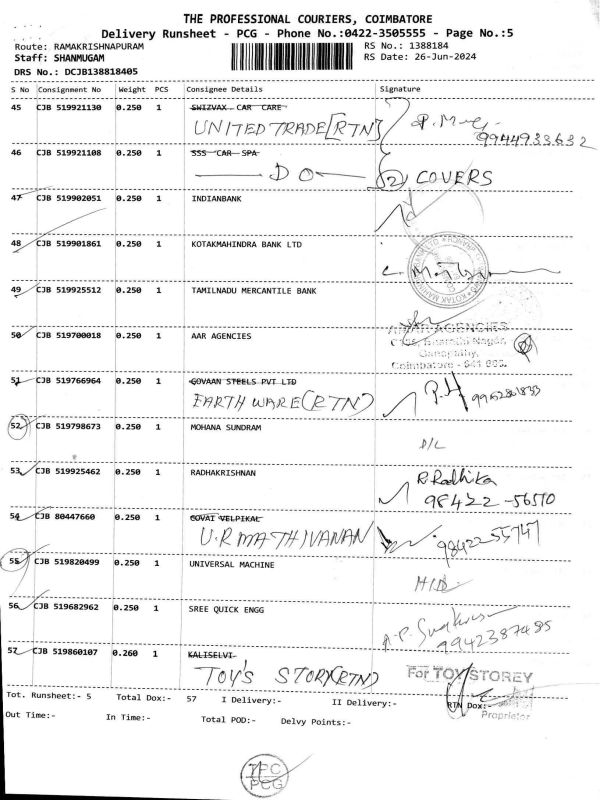 THE PROFESSIONAL COURIERS, COIMBATORE
Delivery Runsheet - PCG - Phone No.:0422-3505555 - Page No.:5
Route: RAMAKRISHNAPURAM RS No.: 1388184
Staff: SHANMUGAM RS Date: 26-Jun-2024
DRS No.: DCJB138818405
S No Consignment No Weight PCS Consignee Details Signature
45 CJB 519921130 0.250 1 SWIZVAX CAR CARE
UNITED TRADE [RTN] 9944933632
46 CJB 519921108 0.250 1 SSS CAR SPA
DO (2) COVERS
47 CJB 519902051 0.250 1 INDIANBANK
48 CJB 519901861 0.250 1 KOTAKMAHINDRA BANK LTD
49 CJB 519925512 0.250 1 TAMILNADU MERCANTILE BANK
50 CJB 519700018 0.250 1 AAR AGENCIES
AGENCIES
Bharathi Nagar,
Ganapathy,
Coimbatore - 641 006.
51 CJB 519766964 0.250 1 GOVAAN STEELS PVT LTD
EARTH WARE (RTN)
52 CJB 519798673 0.250 1 MOHANA SUNDRAM
D/L
53 CJB 519925462 0.250 1 RADHAKRISHNAN R. Radhika
98422-56570
54 CJB 80447660 0.250 1 COVAI VELPIKAL
U.R MATHIVANAN 98422 55747
55 CJB 519820499 0.250 1 UNIVERSAL MACHINE
H/D
56 CJB 519682962 0.250 1 SREE QUICK ENGG
9942387485
57 CJB 519860107 0.260 1 KALISELVI
TOY'S STORY(RTN) For TOY STOREY
Tot. Runsheet:- 5 Total Dox:- 57 I Delivery:- II Delivery:- RTN Dox:-
Proprietor
Out Time:- In Time:- Total POD:- Delvy Points:-
TPC
PCG